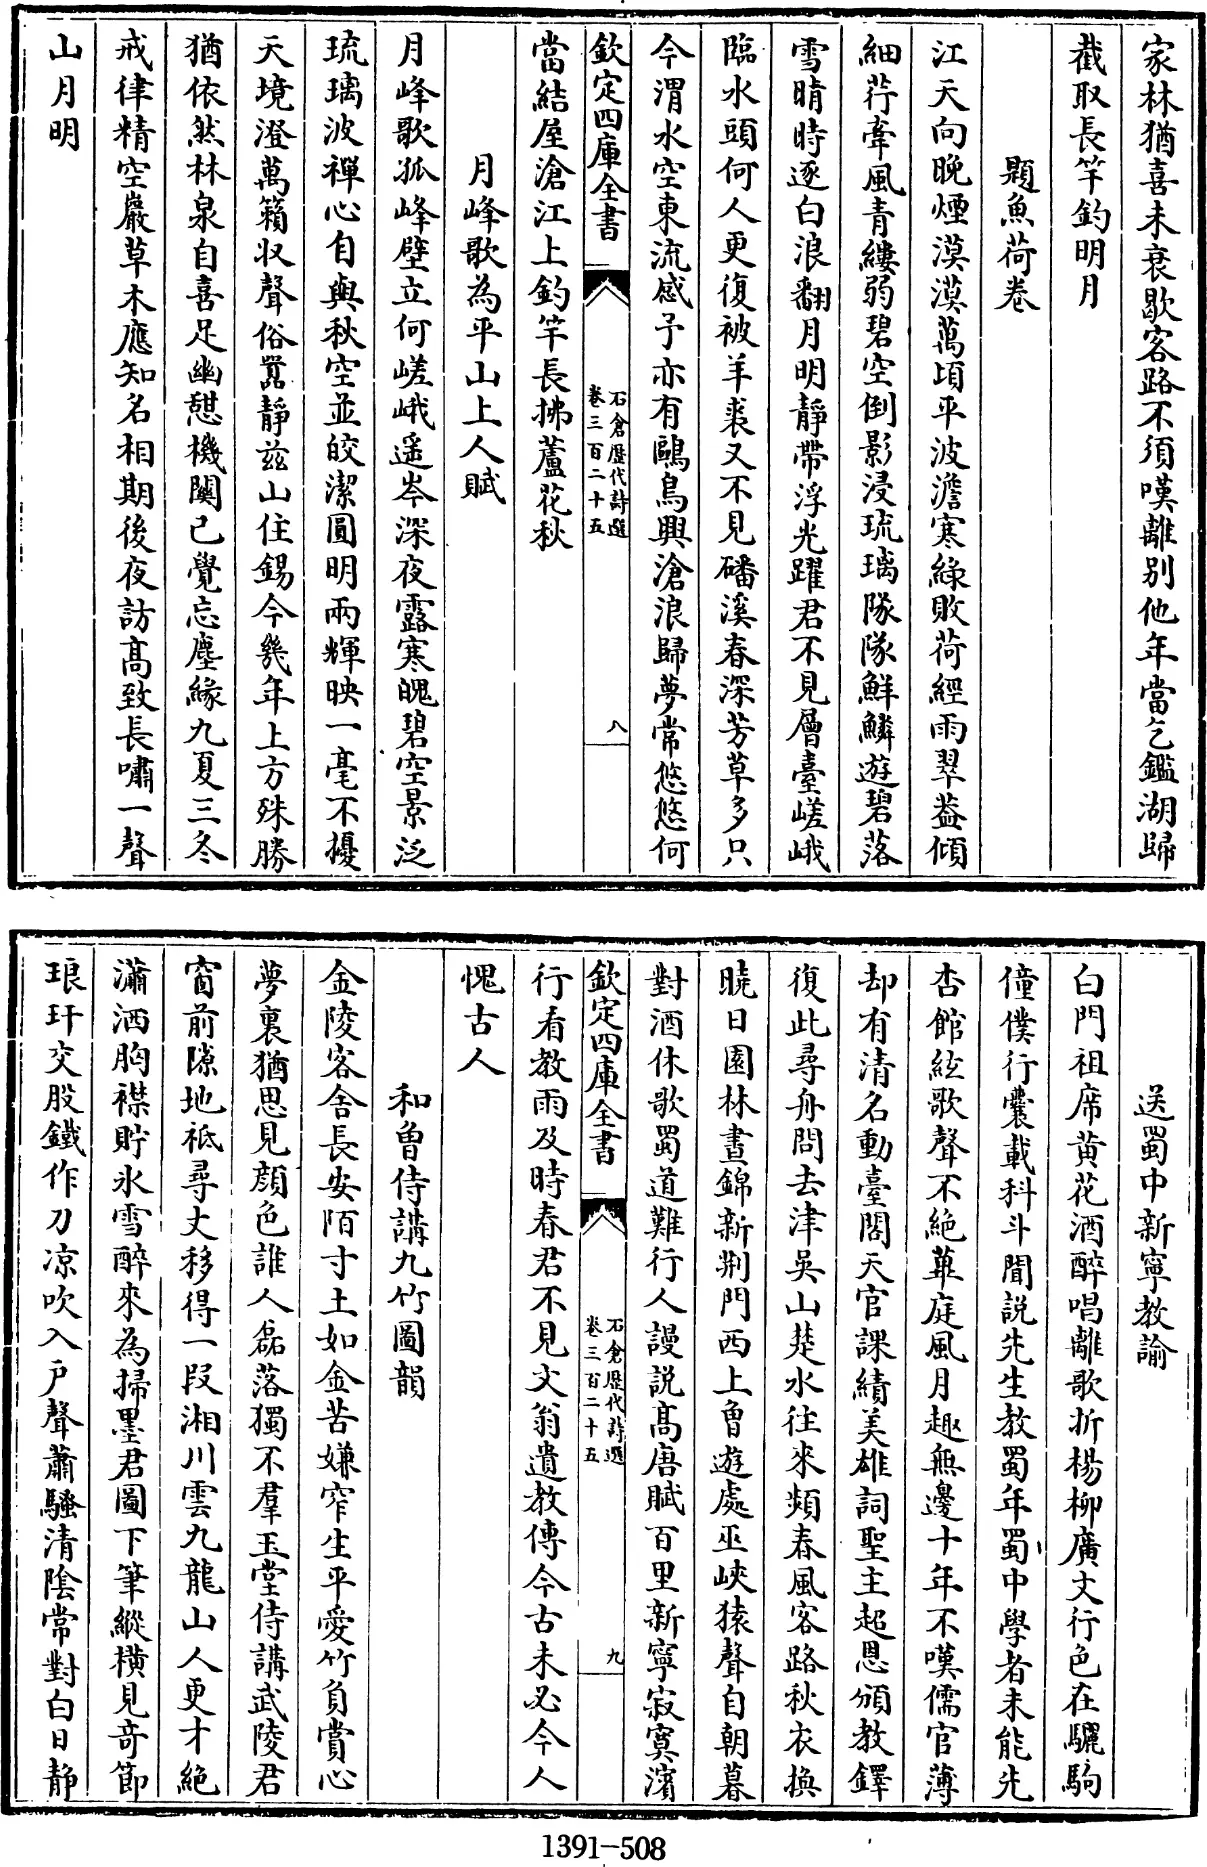 家林猶喜未衰歇客路不須嘆離别他年當乞鑑湖歸
截取長竿釣明月
題魚荷卷
江天向晚煙漠漠萬頃平波澹寒綠敗荷經雨翠葢傾
細荇牽風青縷弱碧空倒影浸琉璃隊隊鮮鱗遊碧落
雪晴時逐白浪翻月明靜帶浮光躍君不見層臺嵯峨
臨水頭何人更復被羊裘又不見磻溪春深芳草多只
今渭水空東流感予亦有鷗鳥興滄浪歸夢常悠悠何
欽定四庫全書
石倉歴代詩選
卷三百二十五
八
當結屋滄江上釣竿長拂蘆花秋
月峰歌為平山上人賦
月峰歌孤峰壁立何嵯峨遥岑深夜露寒魄碧空景泛
琉璃波禪心自與秋空並皎潔圓明兩輝映一毫不擾
天境澄萬籟収聲俗囂靜兹山住錫今幾年上方殊勝
猶依然林泉自喜足幽憇機關已覺忘塵緣九夏三冬
戒律精空巖草木應知名相期後夜訪髙致長嘯一聲
山月明
送蜀中新寧教諭
白門祖席黄花酒醉唱離歌折楊柳廣文行色在驪駒
僮僕行囊載科斗聞説先生教蜀年蜀中學者未能先
杏館絃歌聲不絶蓽庭風月趣無邊十年不嘆儒官薄
却有清名動臺閣天官課績美雄詞聖主超恩頒教鐸
復此尋舟問去津吳山楚水往來頻春風客路秋衣換
曉日園林晝錦新荆門西上曾遊處巫峽猿聲自朝暮
對酒休歌蜀道難行人謾説髙唐賦百里新寧寂寞濱
欽定四庫全書
石倉歴代詩選
卷三百二十五
九
行看教雨及時春君不見文翁遺教傳今古未必今人
愧古人
和曾侍講九竹圖韻
金陵客舍長安陌寸土如金苦嫌窄生平愛竹負賞心
夢裏猶思見顔色誰人磊落獨不羣玉堂侍講武陵君
窗前隙地祗尋丈移得一段湘川雲九龍山人更才絶
瀟洒胸襟貯氷雪醉來為掃墨君圖下筆縱横見奇節
琅玕交股鐵作刀凉吹入戸聲蕭騷清陰常對白日静
1391-508